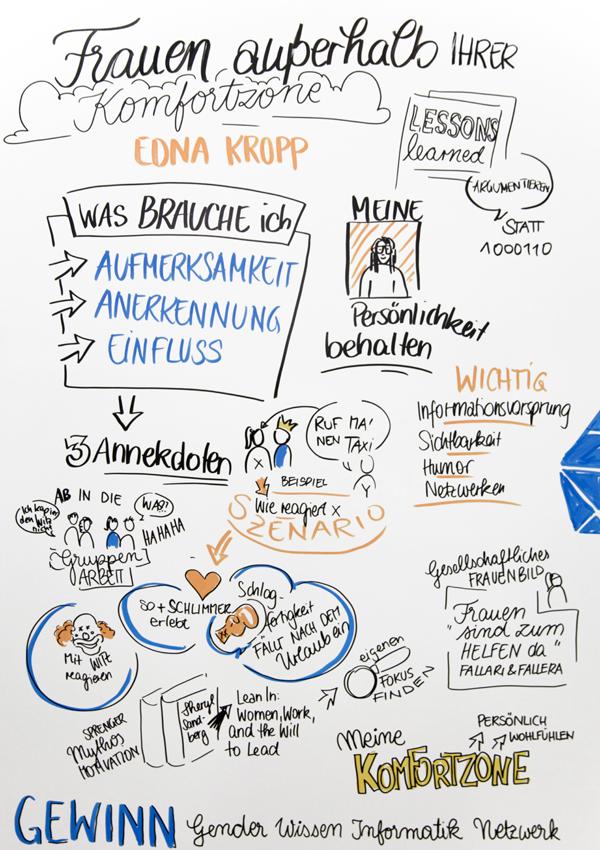 Frauen außerhalb IHRER
Komfortzone
EDNA KROPP
LESSONS
learned
ARGUMENTIEREN
STATT
1000110
WAS BRAUCHE ich
AUFMERKSAMKEIT
ANERKENNUNG
EINFLUSS
MEINE
Persönlichkeit
behalten
WICHTIG
Informationsvorsprung
Sichtbarkeit
Humor
Netzwerken
3 Annekdoten
X
RUF MA'
NEN
TAXI
Y
BEISPIEL
Wie reagiert X
SZENARIO
AB IN DIE
Ich kapier
den Witz
nicht
WAS?!
HAHAHA
Gruppen
ARBEIT
Mit Witz
reagieren
SO + SCHLIMMER
erlebt
Schlag-
fertigkeit
FÄLLT NACH DEM
Urlaub ein
Gesellschaftliches
FRAUENBILD
Frauen
"sind zum
HELFEN da"
FALLARI & FALLERA
eigenen
FOKUS
FINDEN
SPRENGER
Mythos
MOTIVATION
Sheryl
Sand-
berg
Lean In:
Women, Work,
and the Will
to Lead
Meine
KOMFORTZONE
PERSÖNLICH
WOHLFÜHLEN
GEWINN Gender Wissen Informatik Netzwerk